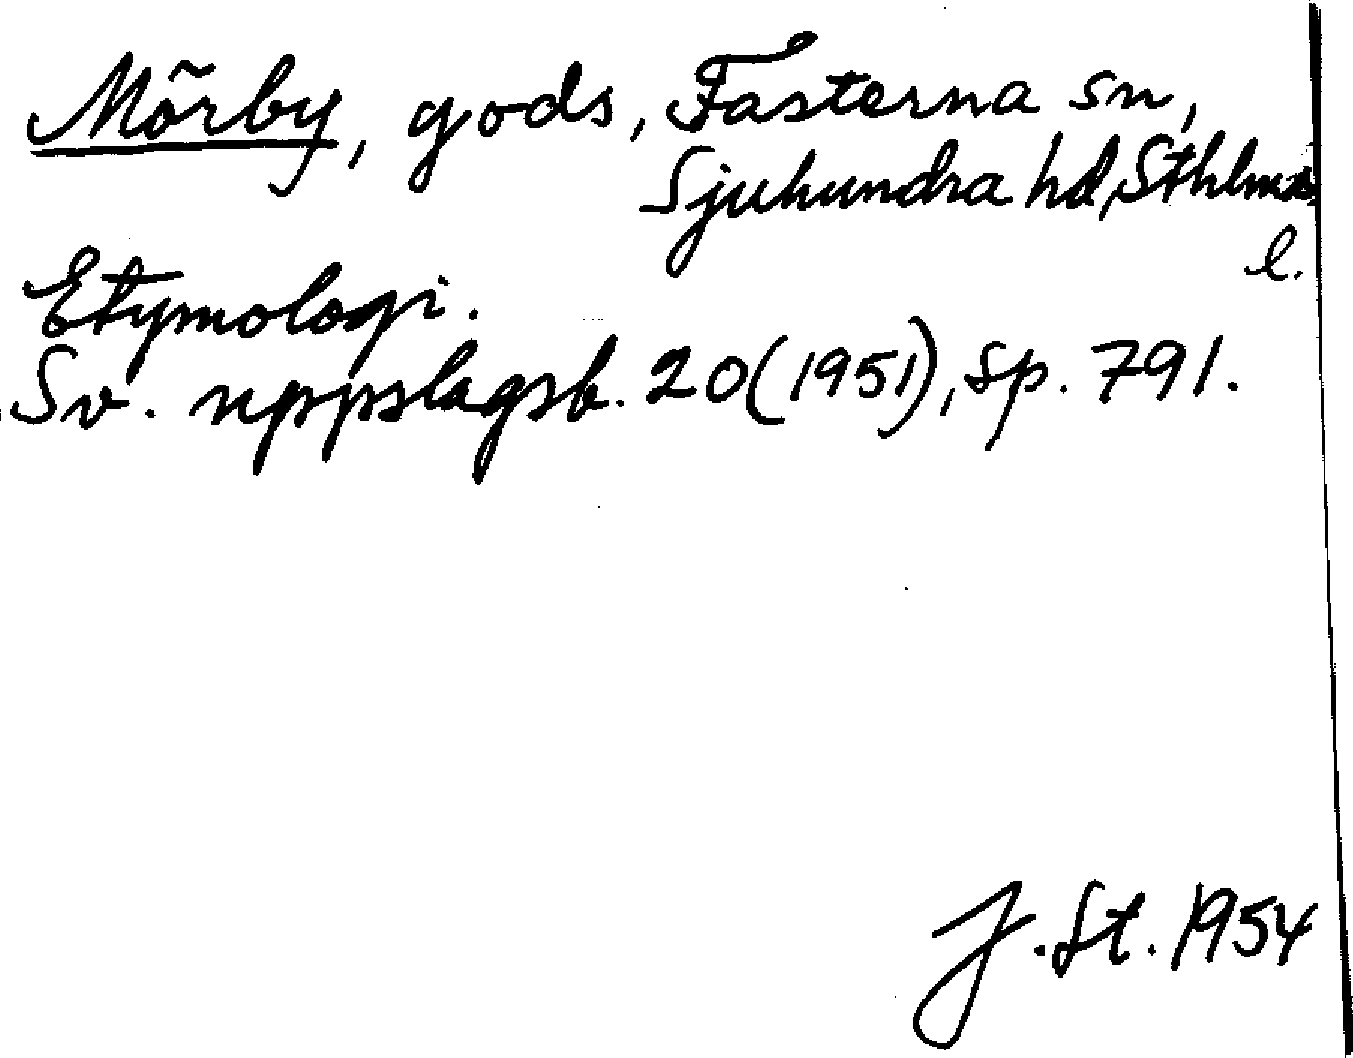 Mörby, gods, Fasterna sn,
Sjuhundra hd, Sthlms
l.
Etymologi.
Sv. uppslagsb. 20 (1951), sp. 791.
J. St. 1954